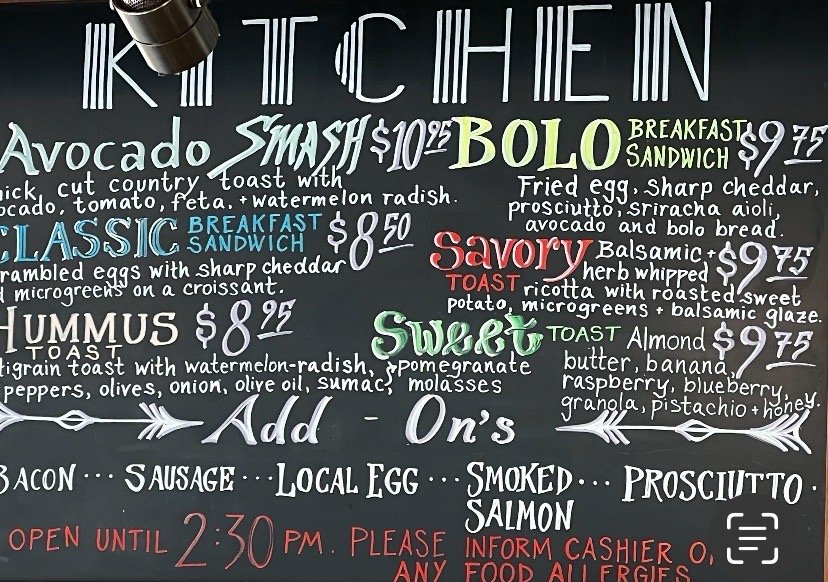 KITCHEN
Avocado SMASH $10.95
ick, cut country toast with
ocado, tomato, feta, + watermelon radish.
CLASSIC BREAKFAST SANDWICH $8.50
rambled eggs with sharp cheddar
d microgreens on a croissant.
HUMMUS TOAST $8.95
tigrain toast with watermelon-radish,
peppers, olives, onion, olive oil, sumac, + pomegranate molasses
BOLO BREAKFAST SANDWICH $9.75
Fried egg, sharp cheddar,
prosciutto, sriracha aioli,
avocado and bolo bread.
Savory TOAST $9.75
Balsamic +
herb whipped
ricotta with roasted sweet
potato, microgreens + balsamic glaze.
Sweet TOAST $9.75
Almond
butter, banana,
raspberry, blueberry,
granola, pistachio + honey.
Add - On's
BACON ... SAUSAGE ... LOCAL EGG ... SMOKED SALMON ... PROSCIUTTO .
OPEN UNTIL 2:30 PM. PLEASE INFORM CASHIER O
ANY FOOD ALLERGIES